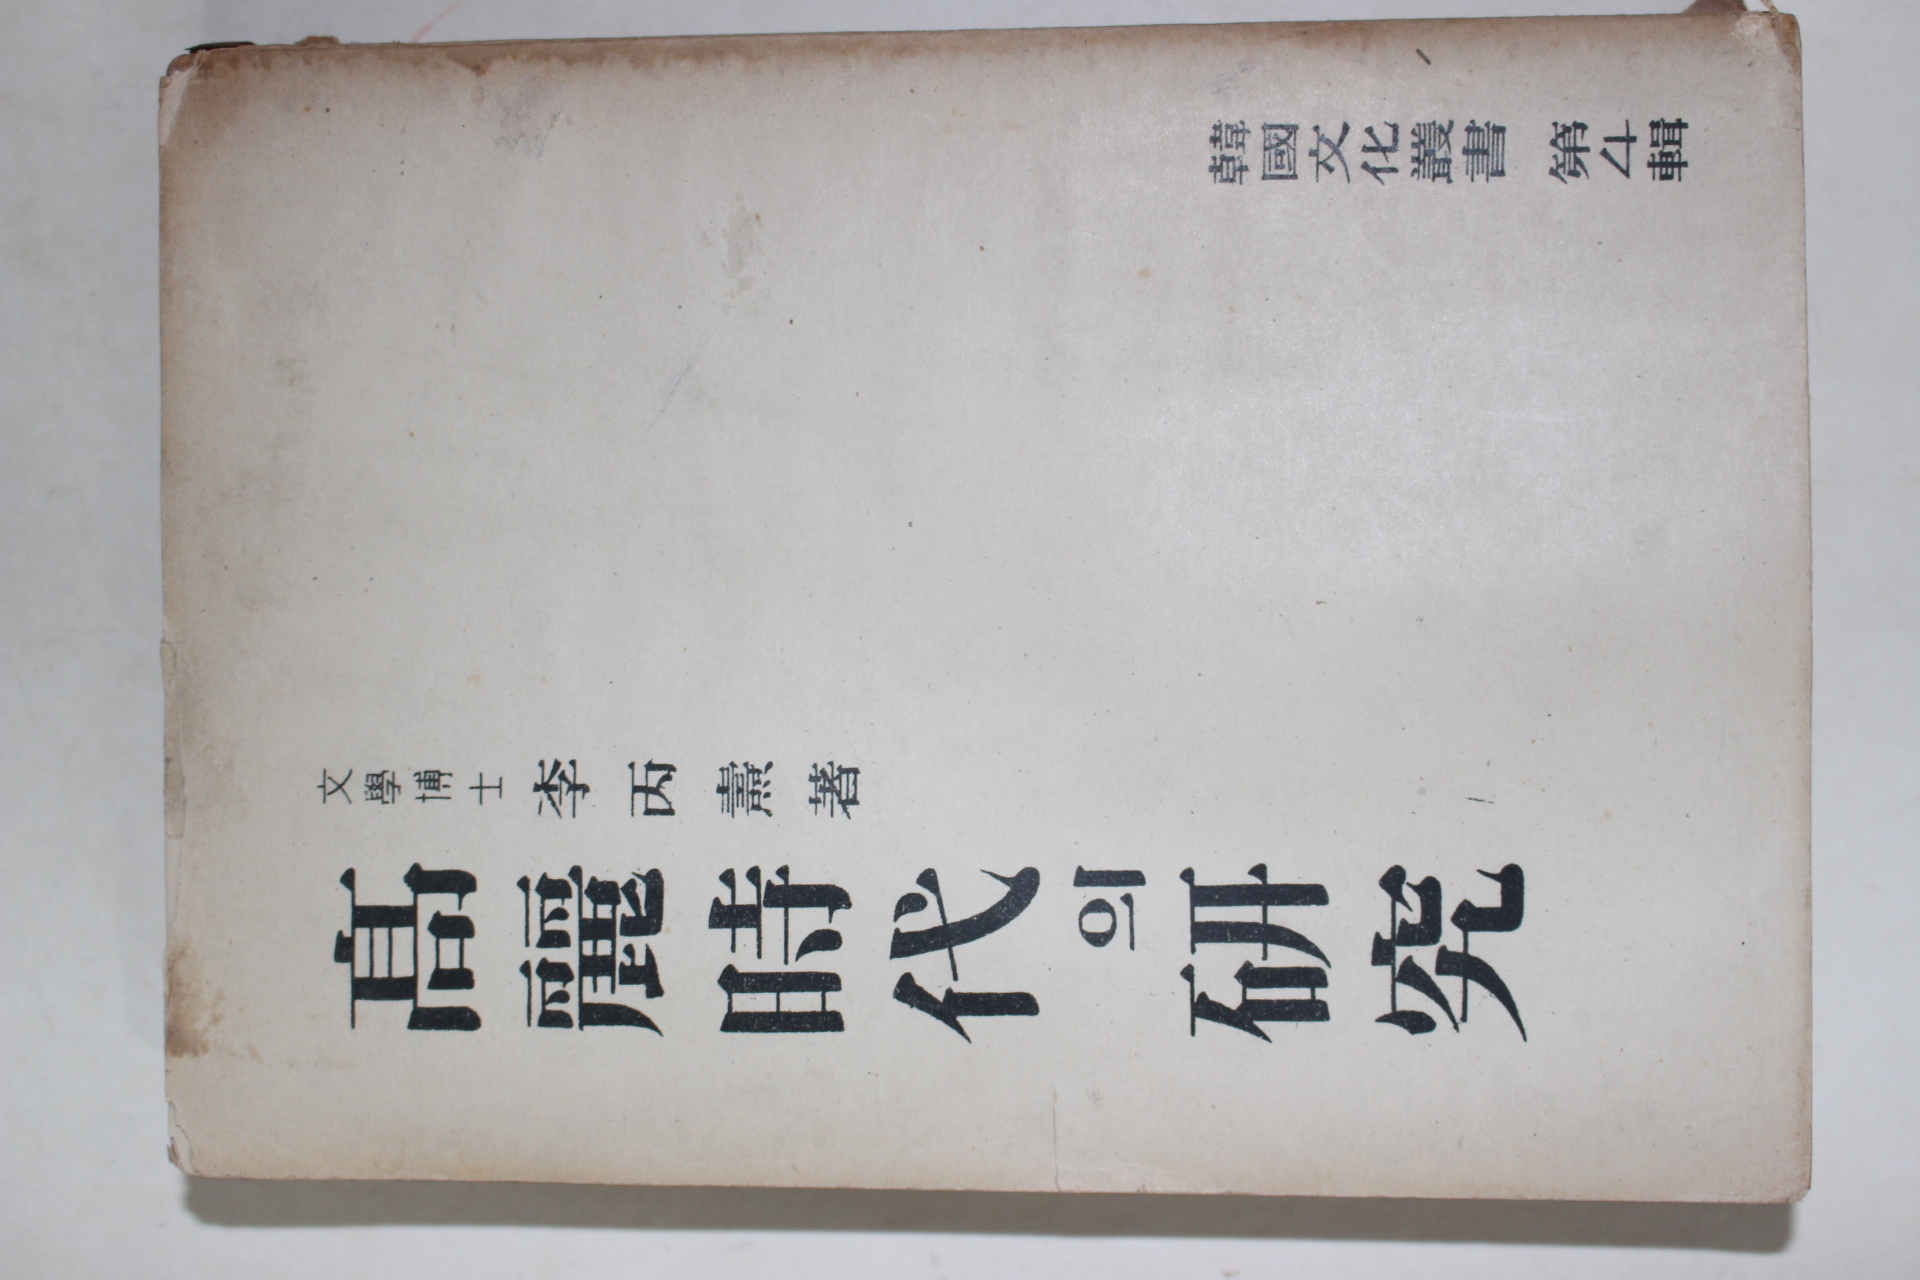 韓國文化叢書 第4輯
文學博士 李丙燾 著
高麗時代의 研究